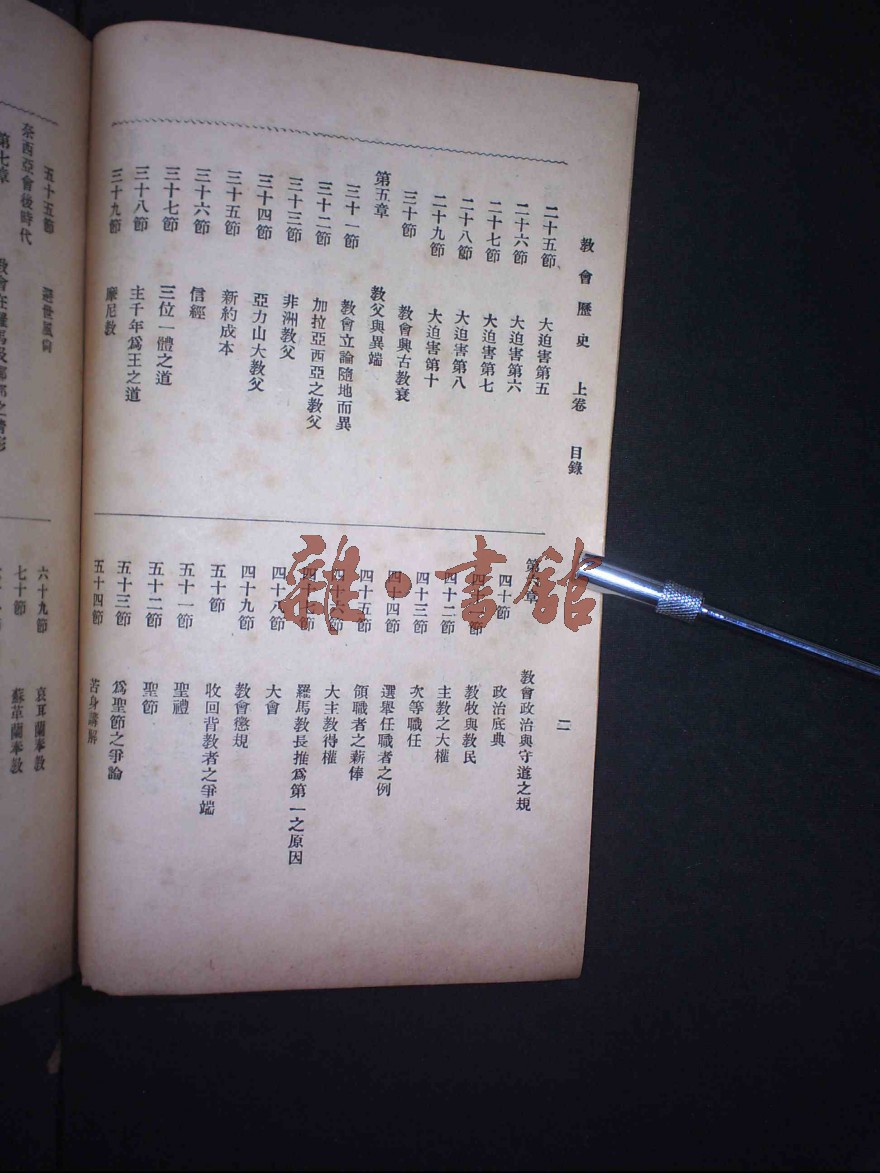 教會歷史 上卷 目錄 二
二十五節 大迫害第五
二十六節 大迫害第六
二十七節 大迫害第七
二十八節 大迫害第八
二十九節 大迫害第十
三十節 教會興古教衰
第五章 教父與異端
三十一節 教會立論隨地而異
三十二節 加拉亞西亞之教父
三十三節 非洲教父
三十四節 亞力山大教父
三十五節 新約成本
三十六節 信經
三十七節 三位一體之道
三十八節 主千年為王之道
三十九節 摩尼教
第六章 教會政治與守道之規
四十節 政治底典
四十一節 教牧與教民
四十二節 主教之大權
四十三節 次等職任
四十四節 選舉任職者之例
四十五節 領職者之薪俸
四十六節 大主教得權
四十七節 羅馬教長推為第一之原因
四十八節 大會
四十九節 教會懲規
五十節 收回背教者之爭端
五十一節 聖禮
五十二節 聖節
五十三節 為聖節之爭論
五十四節 苦身講解
五十五節 避世風尚
奈西亞會後時代
第七章
六十九節 哀耳蘭奉教
七十節 蘇革蘭奉教
雜·書館